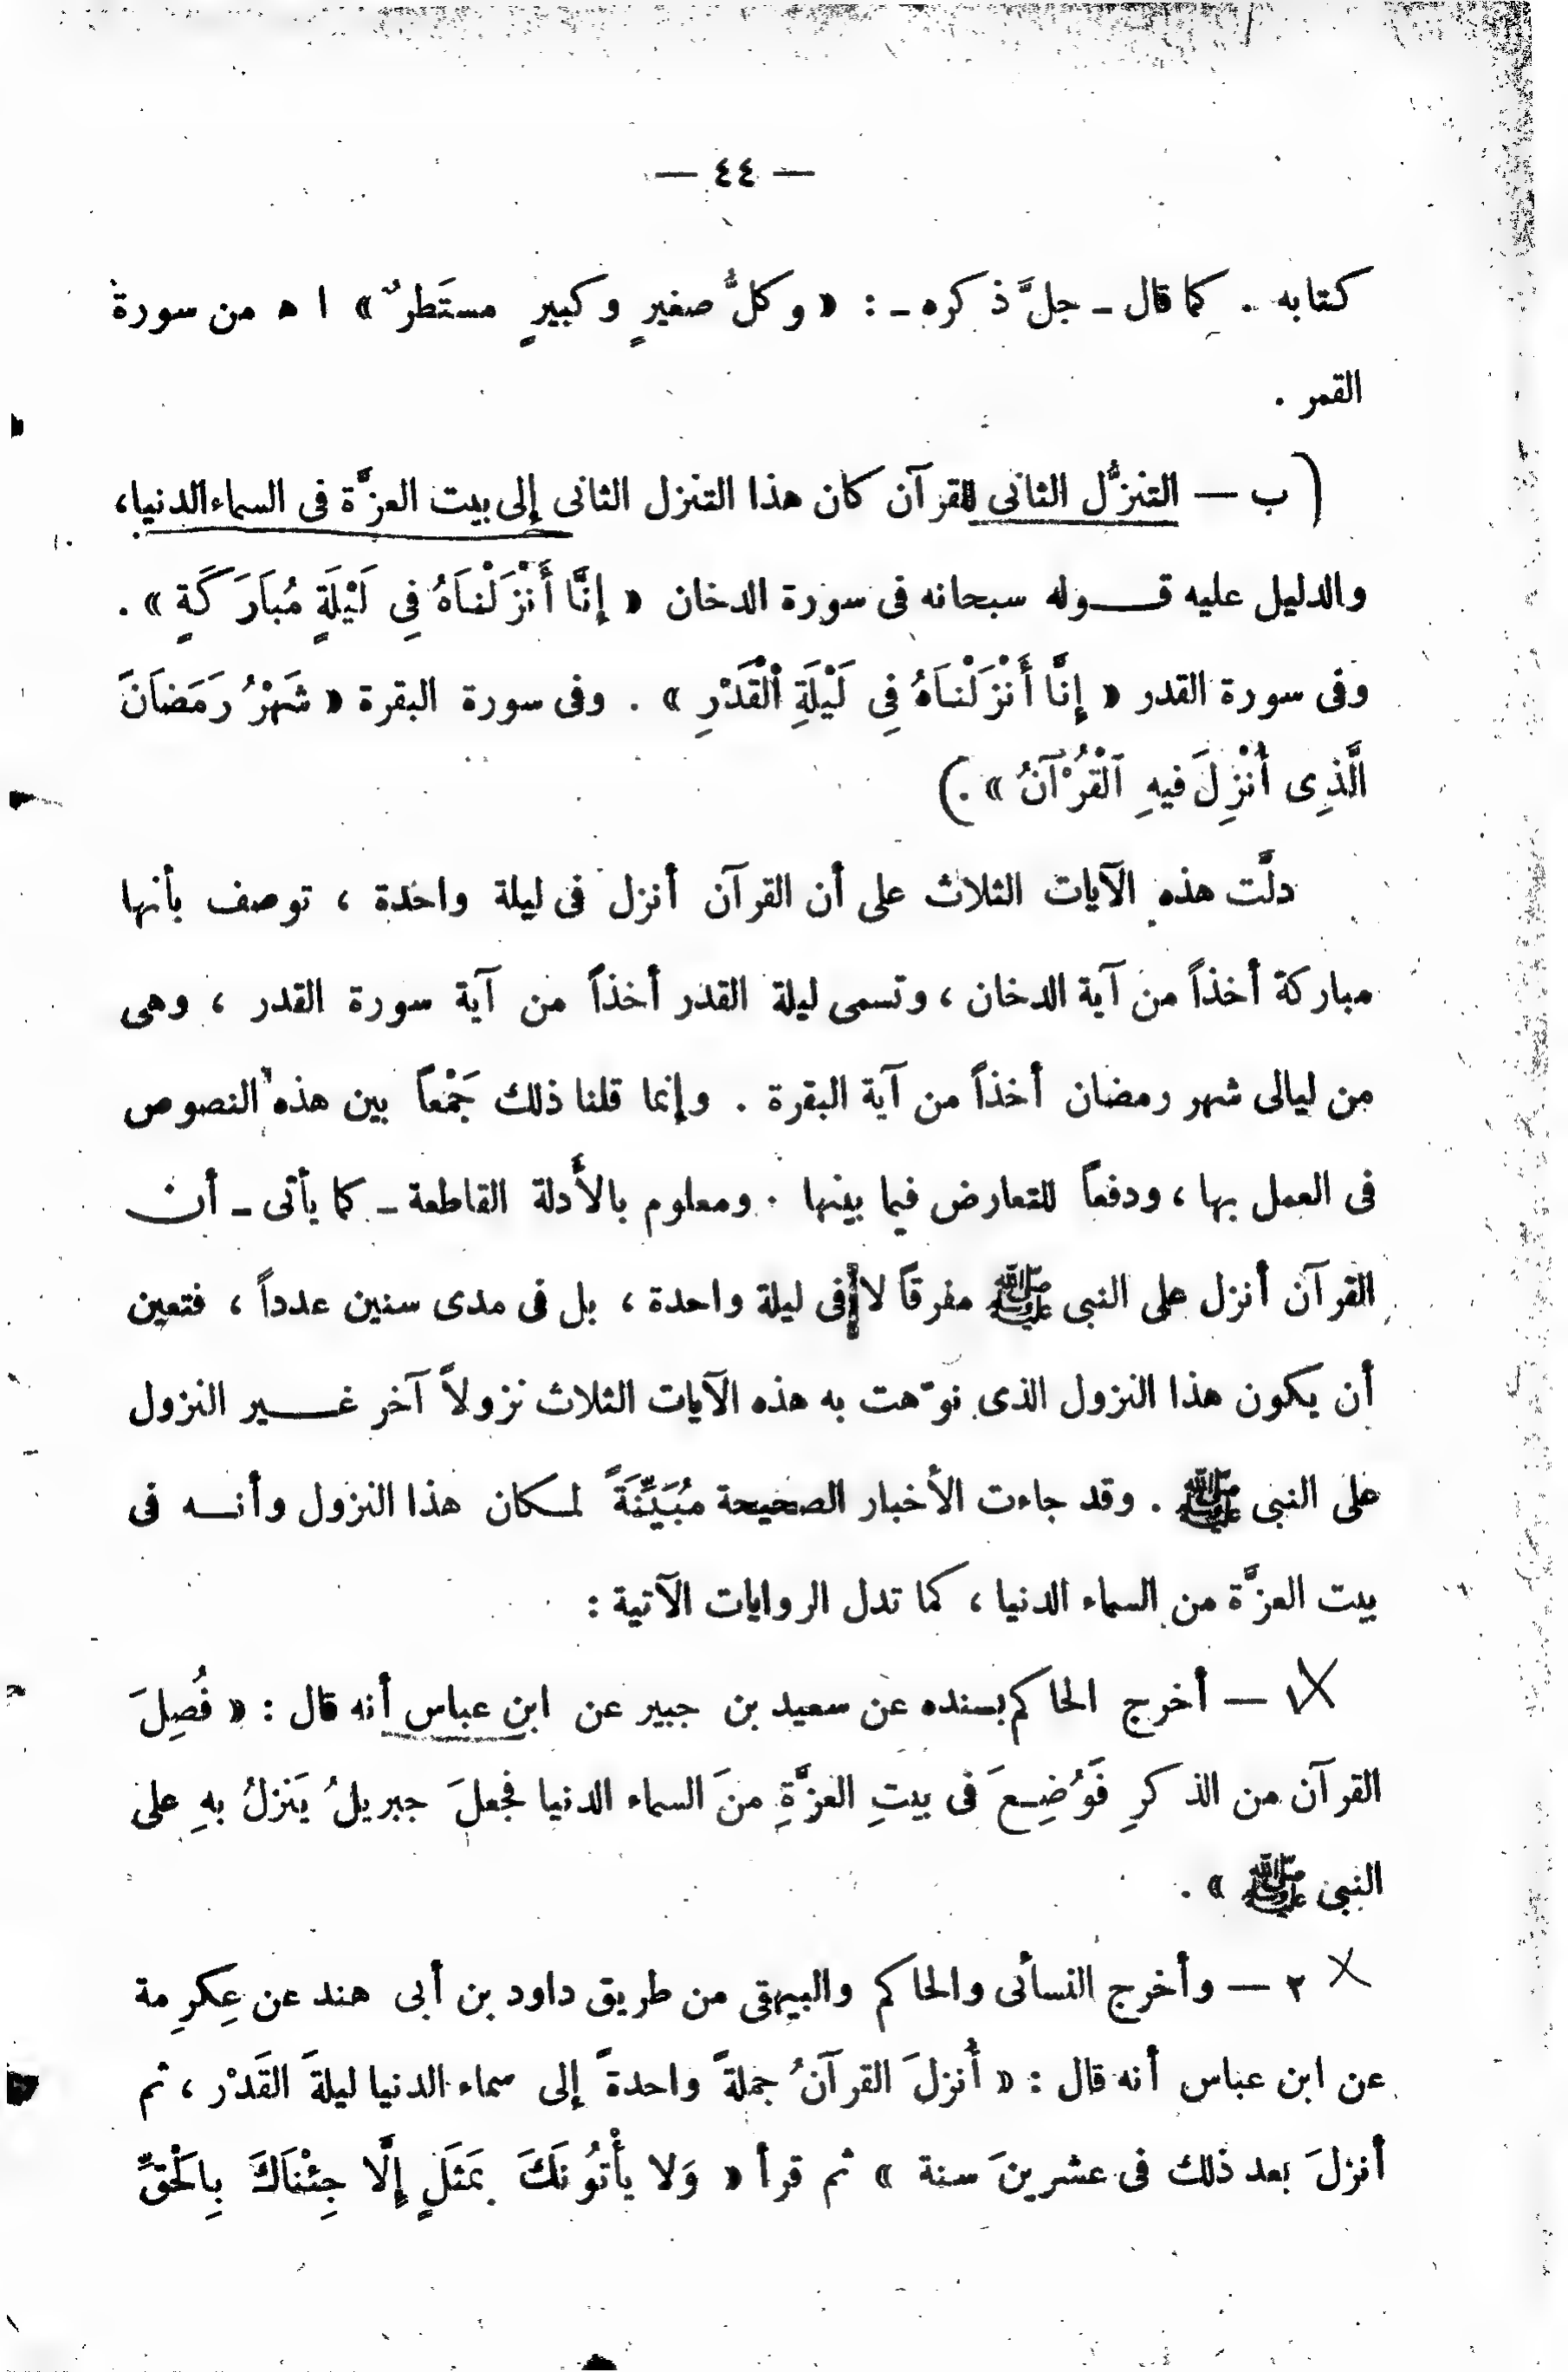 — ٤٤ —
كتابه . كما قال ـ جلَّ ذكره ـ : « وكلُّ صغيرٍ وكبيرٍ مستَطرٌ » ا ه من سورة
القمر .
( ب — التنزُّل الثانى للقرآن كان هذا التنزل الثانى إلى بيت العزَّة فى السماء الدنيا ،
والدليل عليه قـــوله سبحانه فى سورة الدخان « إِنَّا أَنْزَلْنَاهُ فِى لَيْلَةٍ مُبَارَكَةٍ » .
وفى سورة القدر « إِنَّا أَنْزَلْنَاهُ فِى لَيْلَةِ ٱلْقَدْرِ » . وفى سورة البقرة « شَهْرُ رَمَضَانَ
الَّذِى أُنْزِلَ فيهِ ٱلْقُرْآنُ » . )
دلَّت هذه الآيات الثلاث على أن القرآن أنزل فى ليلة واحدة ، توصف بأنها
مباركة أخذاً من آية الدخان ، وتسمى ليلة القدر أخذاً من آية سورة القدر ، وهى
من ليالى شهر رمضان أخذاً من آية البقرة . وإنما قلنا ذلك جَمْعاً بين هذه النصوص
فى العمل بها ، ودفعاً للتعارض فيما بينها . ومعلوم بالأدلة القاطعة ـ كما يأتى ـ أن
القرآن أنزل على النبى ﷺ مفرقاً لا فى ليلة واحدة ، بل فى مدى سنين عدداً ، فتعين
أن يكون هذا النزول الذى نوّهت به هذه الآيات الثلاث نزولاً آخر غـــير النزول
على النبى ﷺ . وقد جاءت الأخبار الصحيحة مُبَيِّنَةً لمكان هذا النزول وأنـه فى
بيت العزَّة من السماء الدنيا ، كما تدل الروايات الآتية :
١ — أخرج الحاكم بسنده عن سعيد بن جبير عن ابن عباس أنه قال : « فُصِلَ
القرآن من الذكرِ فَوُضِعَ فى بيتِ العزَّةِ منَ السماء الدنيا فجعلَ جبريلُ يَنزلُ بهِ على
النبى ﷺ » .
٢ — وأخرج النسائى والحاكم والبيهقى من طريق داود بن أبى هند عن عِكرِمة
عن ابن عباس أنه قال : « أُنزلَ القرآنُ جملةً واحدةً إلى سماء الدنيا ليلةَ القَدْر ، ثم
أنزلَ بعد ذلك فى عشرينَ سنة » ثم قرأ « وَلا يأْتُونَكَ بمَثَلٍ إِلَّا جِئْنَاكَ بِالْحَقِّ